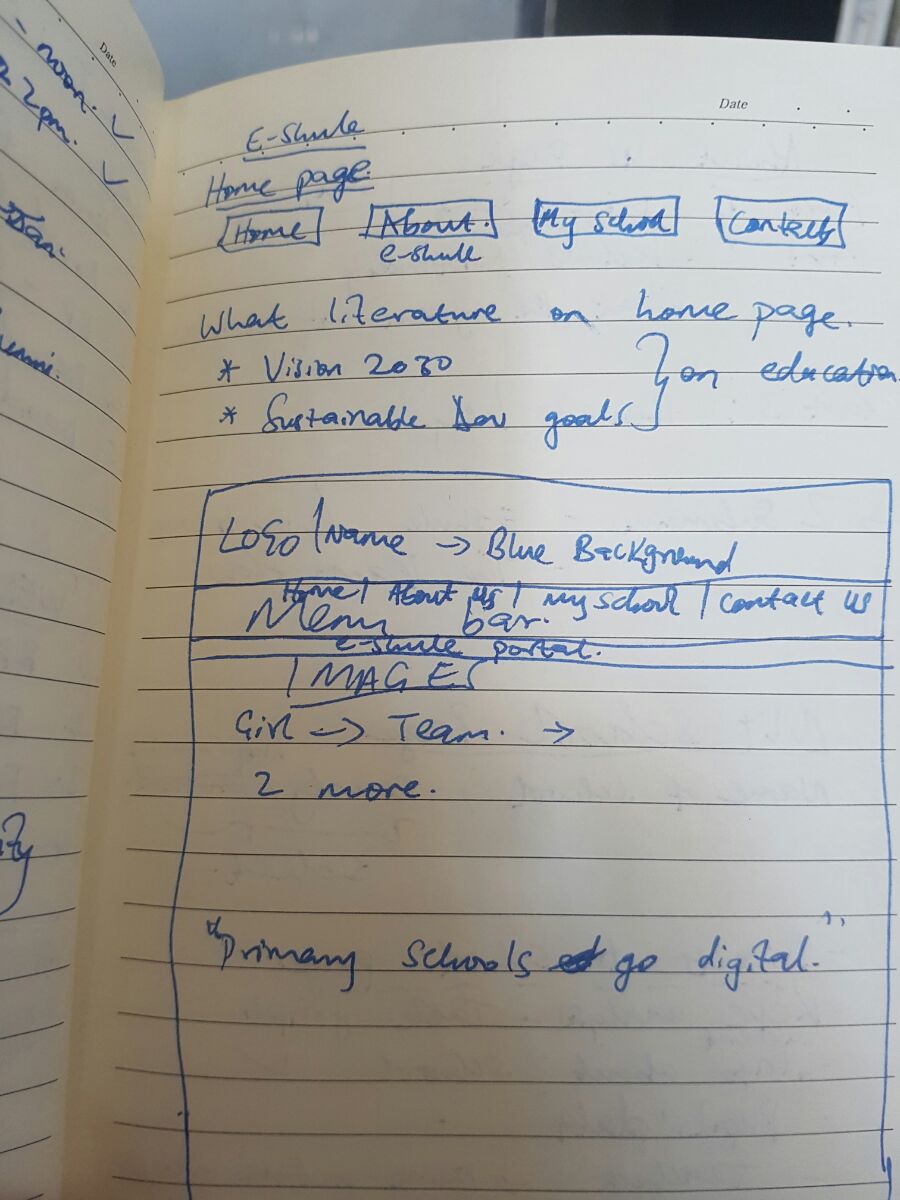 Date
noon.
2pm.
Jan.
Date
E-Shule
Home page.
Home About. My School Contacts
e-shule
What literature on home page.
* Vision 2030
} on education
* Sustainable Dev goals.
Logo | Name → Blue Background
Home | About us | my school | contact us
Menu bar.
e-shule portal.
IMAGES
Girl → Team. →
2 more.
"Primary schools go digital."